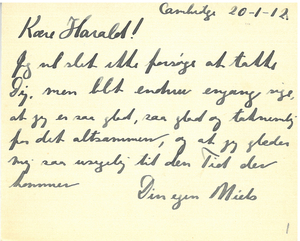 Cambridge 20-1-12.
Kære Harald!
Jeg vil slet ikke forsøge at takke
Dig, men blot endnu engang sige,
at jeg er saa glad, saa glad og taknemlig
for det altsammen, og at jeg glæder
mig saa usigelig til den Tid der
kommer
Din egen Niels
1